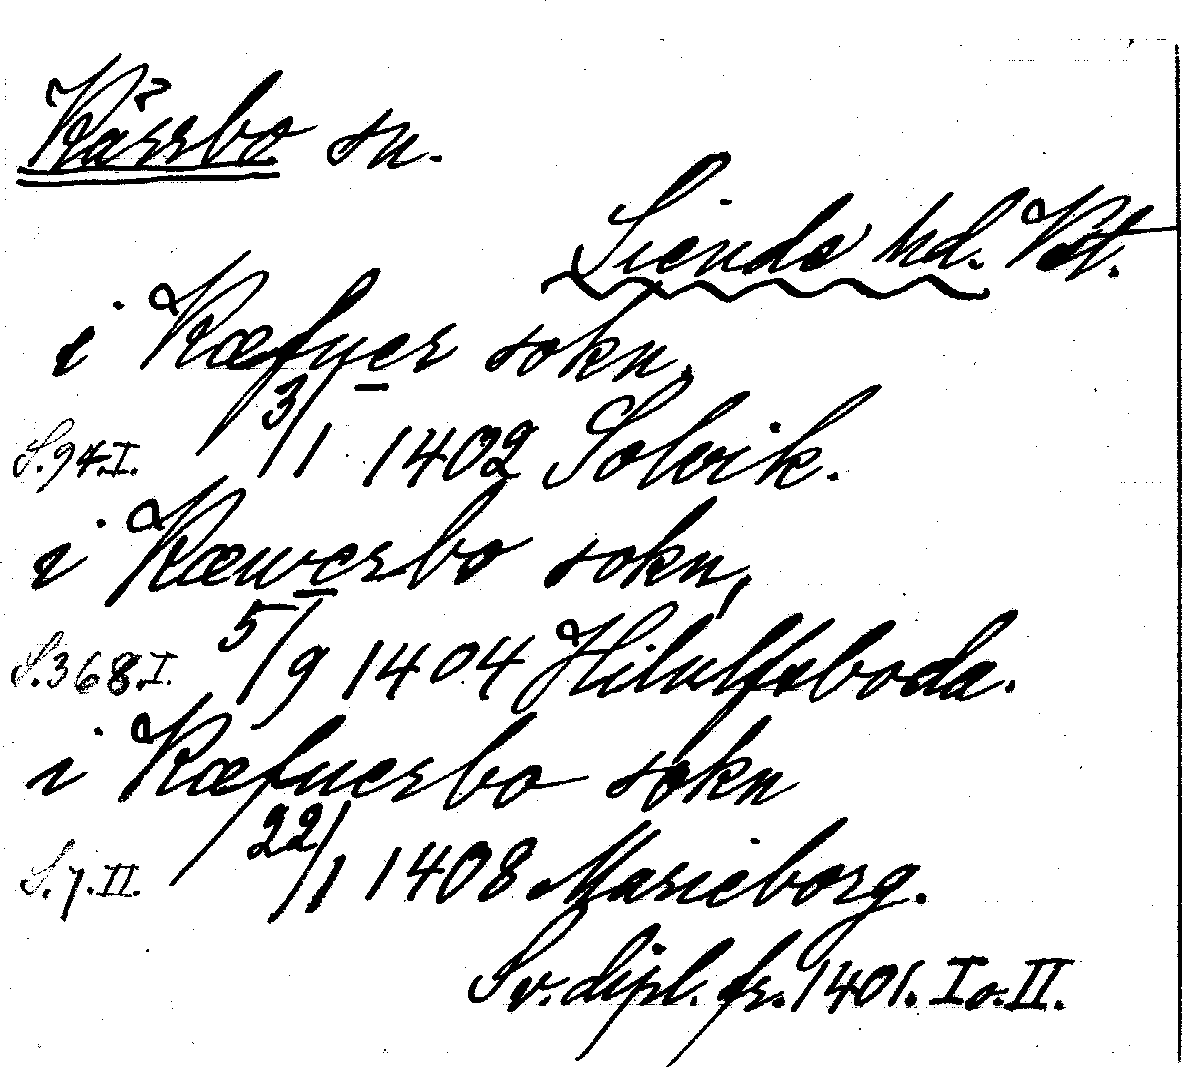 Kärrbo sn.
Siende hd. Vst.
i Kæfuer sokn,
S.94.I. 3/1 1402 Solvik.
i Kæwerbo sokn,
S.368.I. 5/9 1404 Hilulfsboda.
i Kæfuerbo sokn
S.7.II. 22/1 1408 Marieborg.
Sv. dipl. fr. 1401. I o. II.